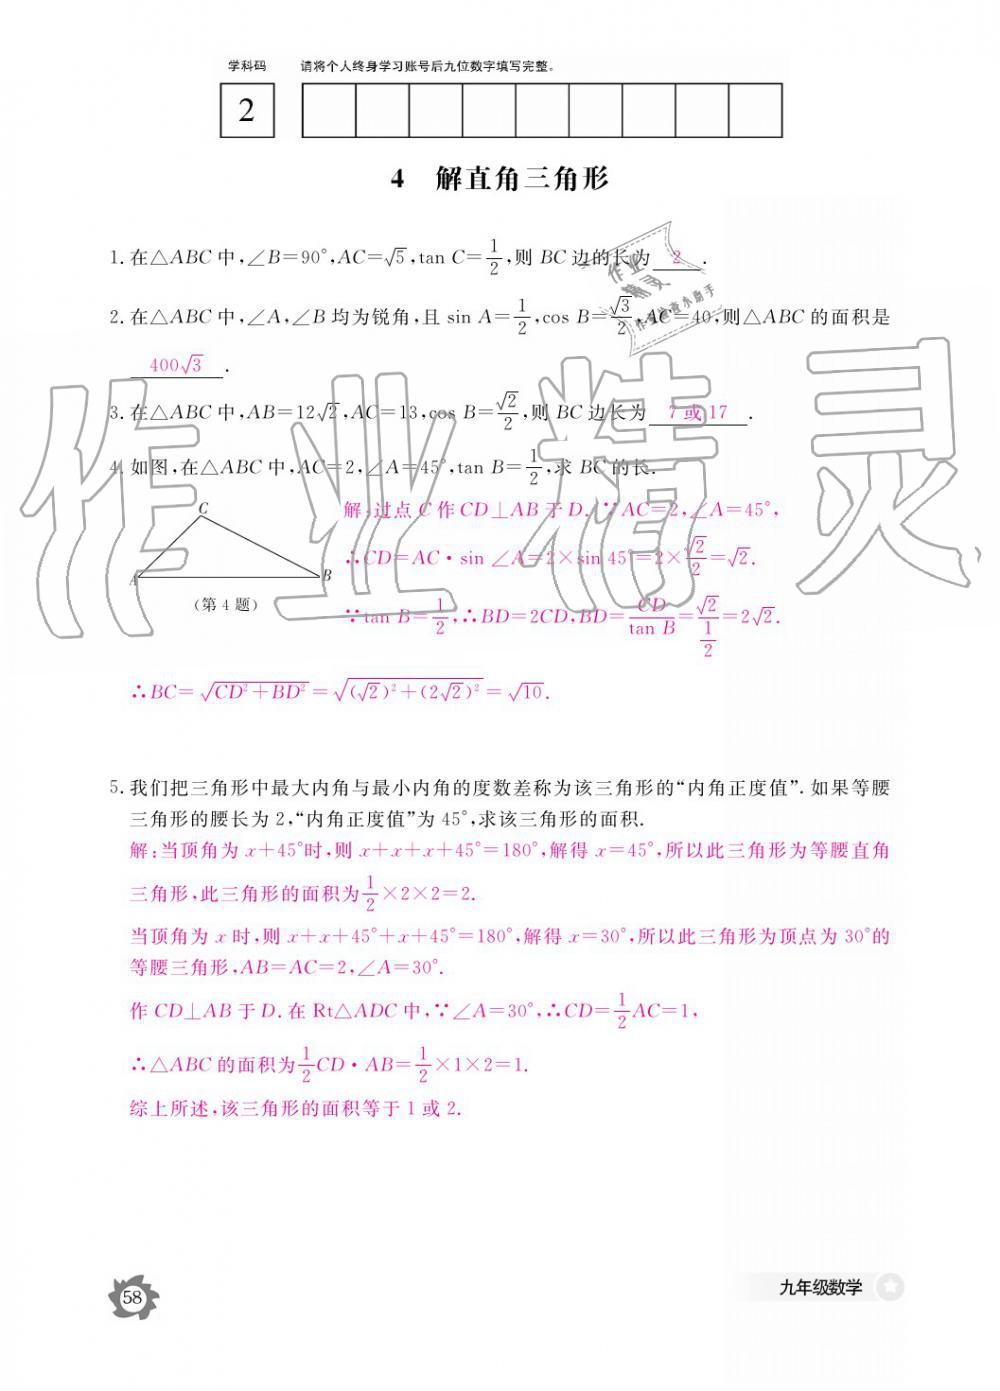 学科码 请将个人终身学习账号后九位数字填写完整。
2
4 解直角三角形
1. 在△ABC 中,∠B=90°,AC=√5,tan C=1/2,则 BC 边的长为 2 .
2. 在△ABC 中,∠A,∠B 均为锐角,且 sin A=1/2,cos B=√3/2,AC=40,则△ABC 的面积是
400√3 .
3. 在△ABC 中,AB=12√2,AC=13,cos B=√2/2,则 BC 边长为 7 或 17 .
4. 如图,在△ABC 中,AC=2,∠A=45°,tan B=1/2,求 BC 的长.
解:过点 C 作 CD⊥AB 于 D.∵AC=2,∠A=45°,
∴CD=AC·sin ∠A=2×sin 45°=2×√2/2=√2.
∵tan B=1/2,∴BD=2CD,BD=CD/tan B=√2/(1/2)=2√2.
C
A
B
(第 4 题)
∴BC=√(CD²+BD²)=√((√2)²+(2√2)²)=√10.
5. 我们把三角形中最大内角与最小内角的度数差称为该三角形的“内角正度值”.如果等腰
三角形的腰长为 2,“内角正度值”为 45°,求该三角形的面积.
解:当顶角为 x+45°时,则 x+x+x+45°=180°,解得 x=45°,所以此三角形为等腰直角
三角形,此三角形的面积为1/2×2×2=2.
当顶角为 x 时,则 x+x+45°+x+45°=180°,解得 x=30°,所以此三角形为顶点为 30°的
等腰三角形,AB=AC=2,∠A=30°.
作 CD⊥AB 于 D.在 Rt△ADC 中,∵∠A=30°,∴CD=1/2AC=1,
∴△ABC 的面积为1/2CD·AB=1/2×1×2=1.
综上所述,该三角形的面积等于 1 或 2.
58
九年级数学
作业精灵
作业
精灵
作业检查小助手